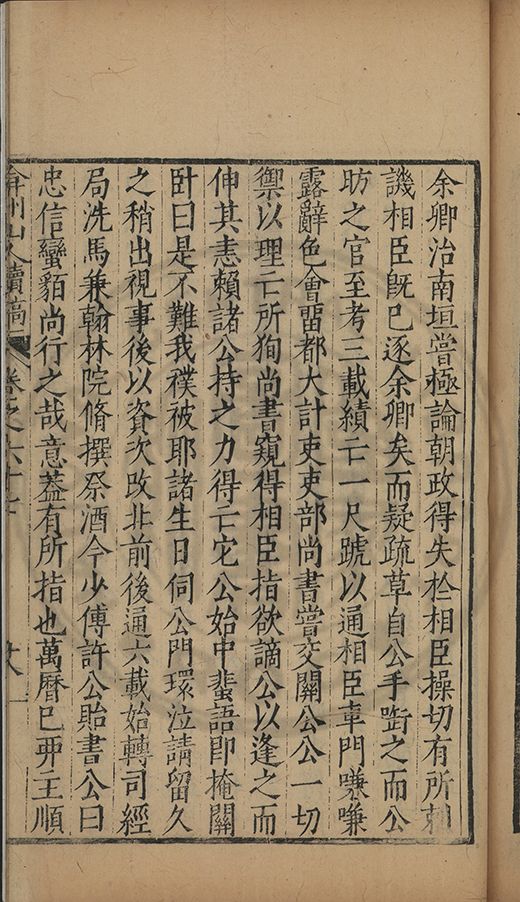 余卿治南垣嘗極論朝政得失於相臣操切有所刺
譏相臣旣已逐余卿矣而疑疏草自公手啣之而公
昉之官至考三載績亡一尺號以通相臣車門嗛嗛
露辭色會畱都大計吏吏部尚書嘗交關公公一切
禦以理亡所狥尚書窺得相臣指欲謫公以逢之而
伸其恚賴諸公持之力得亡它公始中蜚語即掩關
卧曰是不難我襆被耶諸生日伺公門環泣請留久
之稍出視事後以資次改北前後通六載始轉司經
局洗馬兼翰林院脩撰祭酒今少傅許公貽書公曰
忠信蠻貊尚行之哉意葢有所指也萬曆己丣主順
弇州山人續稿 卷之六十七 十八